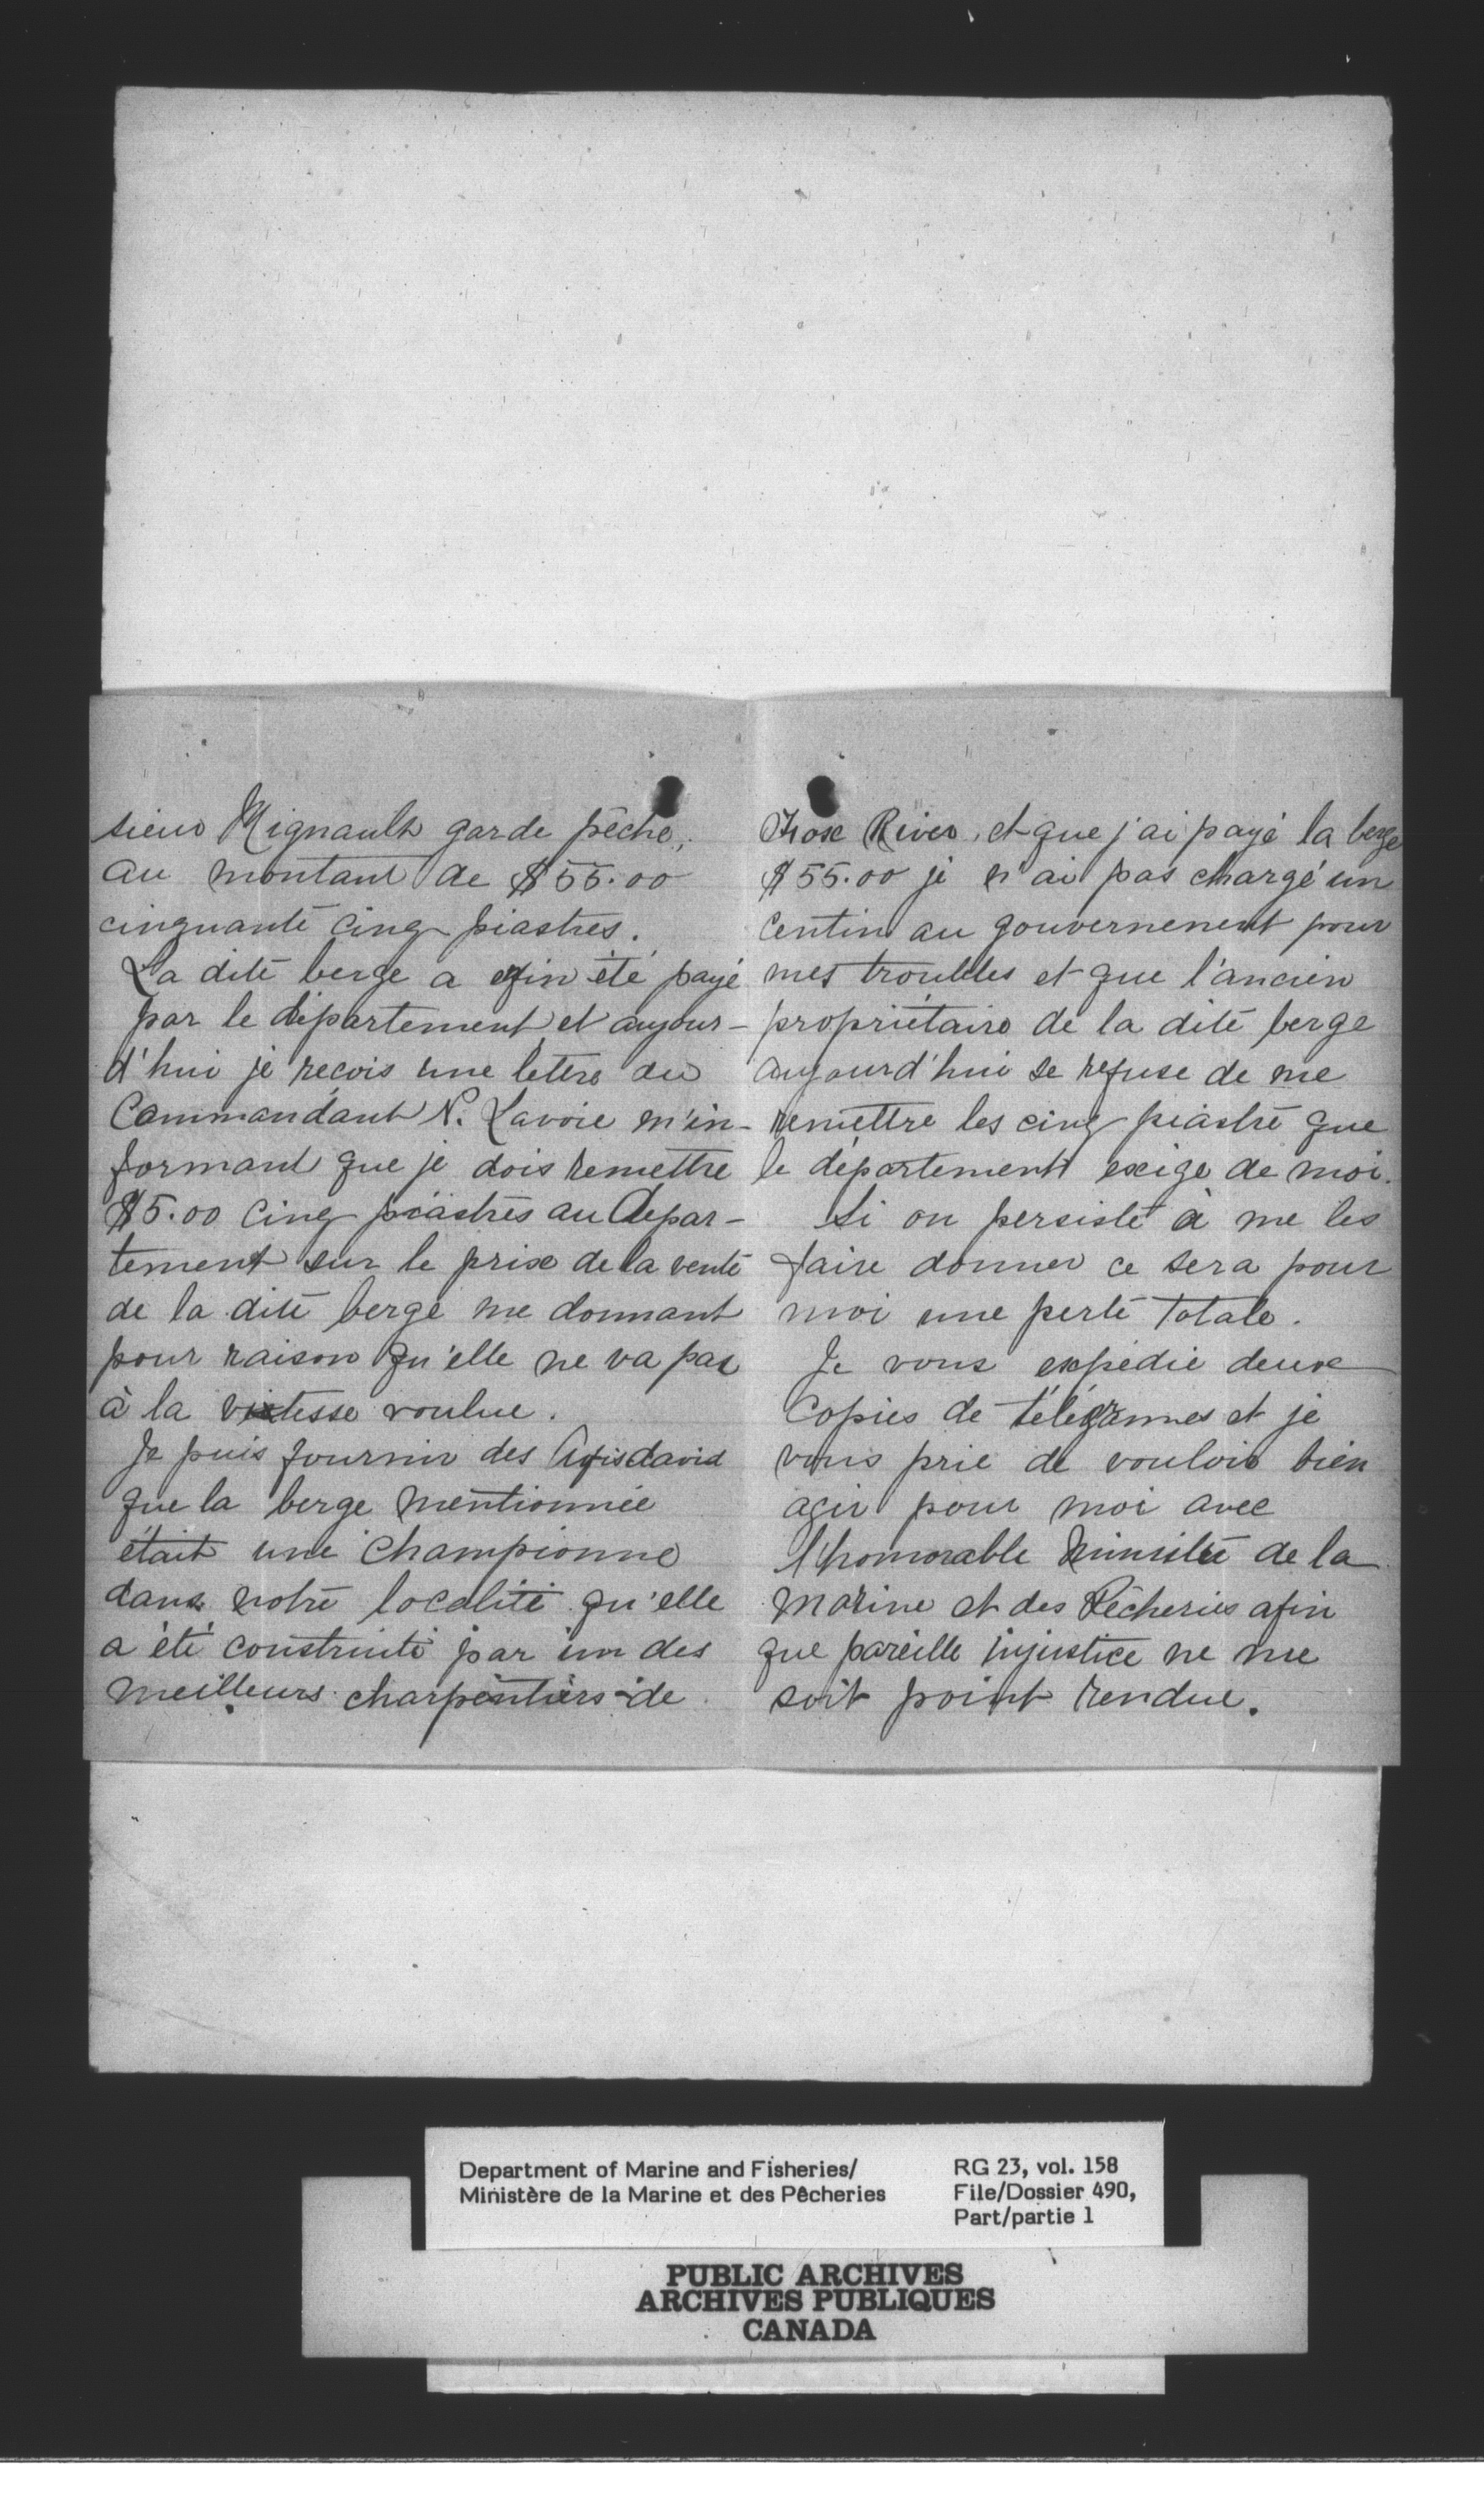 sieur Mignault garde pêche,
au montant de $55.00
cinquante cinq piastres.
La dite berge a efin été payé
par le département et aujour-
d'hui je reçois une lettre du
Commandant N. Lavoie m'in-
formant que je dois remettre
$5.00 cinq piastres au Depar-
tement sur le prix de la vente
de la dite berge me donnant
pour raison qu'elle ne va pas
à la vitesse voulue.
Je puis fournir des Afisdavid
que la berge mentionnée
était une championne
dans notre localité qu'elle
a été construite par un des
meilleurs charpentiers de
Fox River, et que j'ai payé la berge
$55.00 je n'ai pas chargé un
centin au gouvernement pour
mes troubles et que l'ancien
propriétaire de la dite berge
aujourd'hui se refuse de me
remettre les cinq piastre que
le département exige de moi.
Si on persiste à me les
faire donner ce sera pour
moi une perte totale.
Je vous expédie deux
copies de télégrammes et je
vous prie de vouloir bien
agir pour moi avec
l'honorable Ministre de la
Marine et des Pêcheries afin
que pareille injustice ne me
soit point rendue.
Department of Marine and Fisheries/
Ministère de la Marine et des Pêcheries
RG 23, vol. 158
File/Dossier 490,
Part/partie 1
PUBLIC ARCHIVES
ARCHIVES PUBLIQUES
CANADA